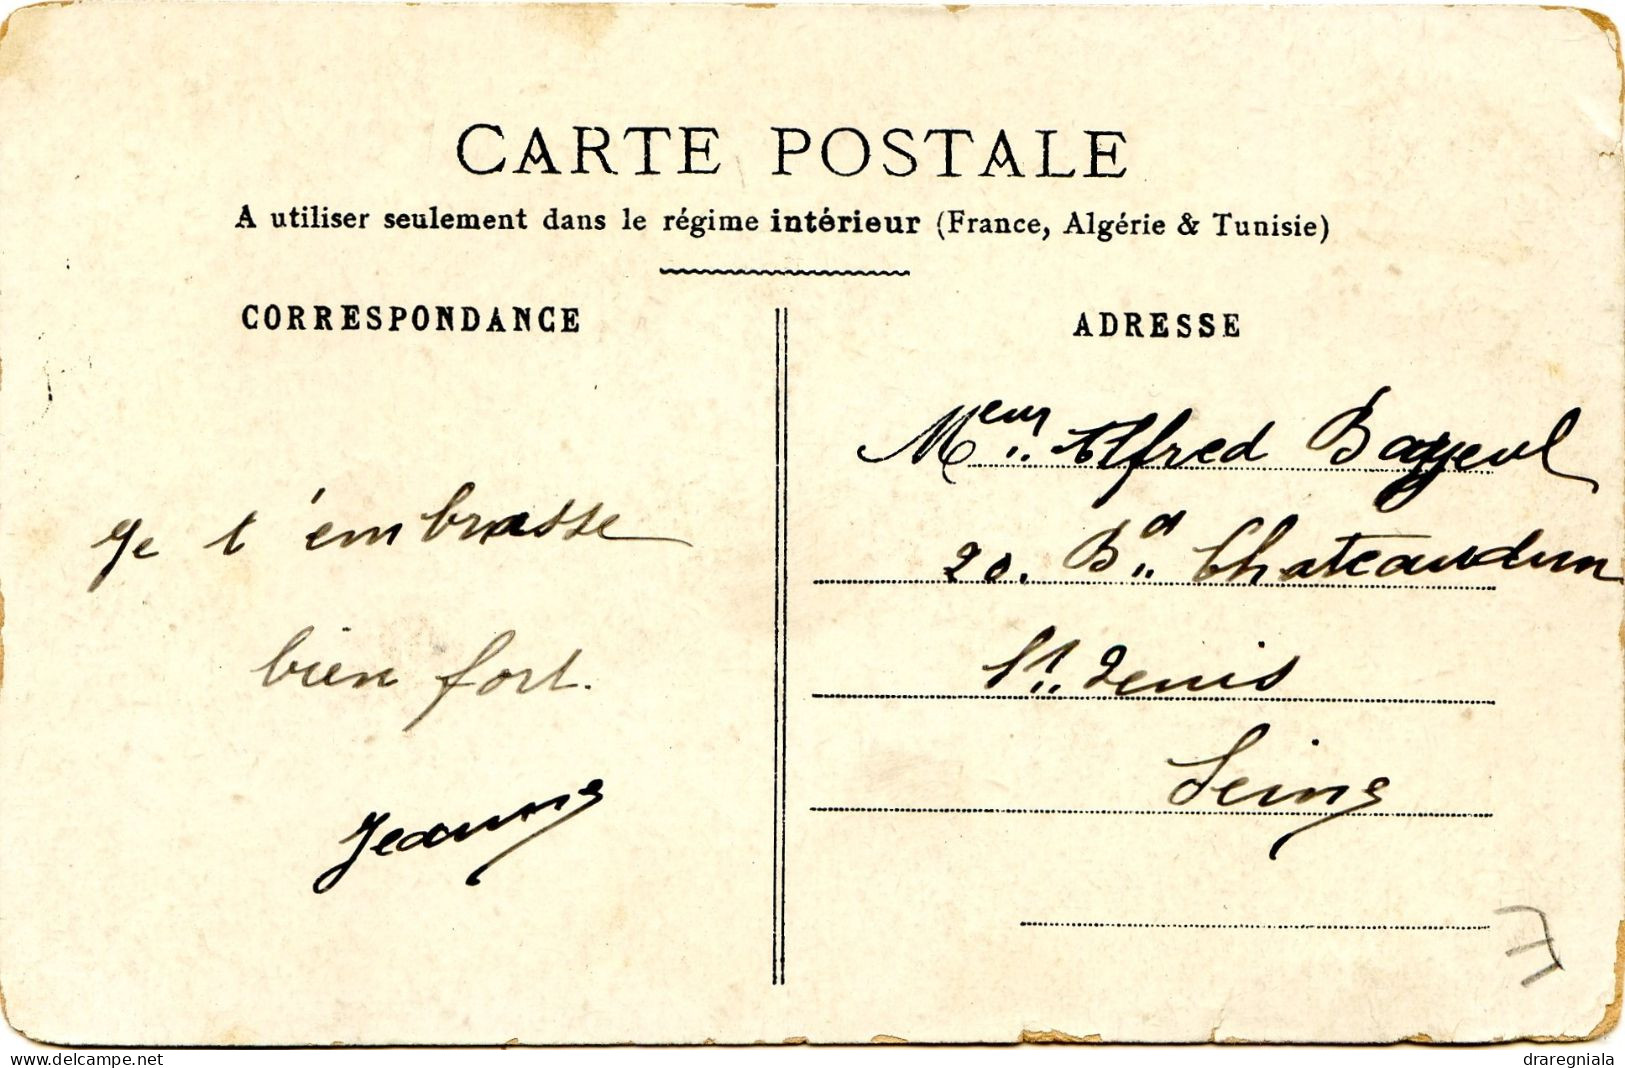 CARTE POSTALE
A utiliser seulement dans le régime intérieur (France, Algérie & Tunisie)
CORRESPONDANCE
Je t'embrasse
bien fort.
Jeanne
ADRESSE
Meur Alfred Bayeul
20. Bd Chateaudun
St Denis
Seine
E
www.delcampe.net
draregniala